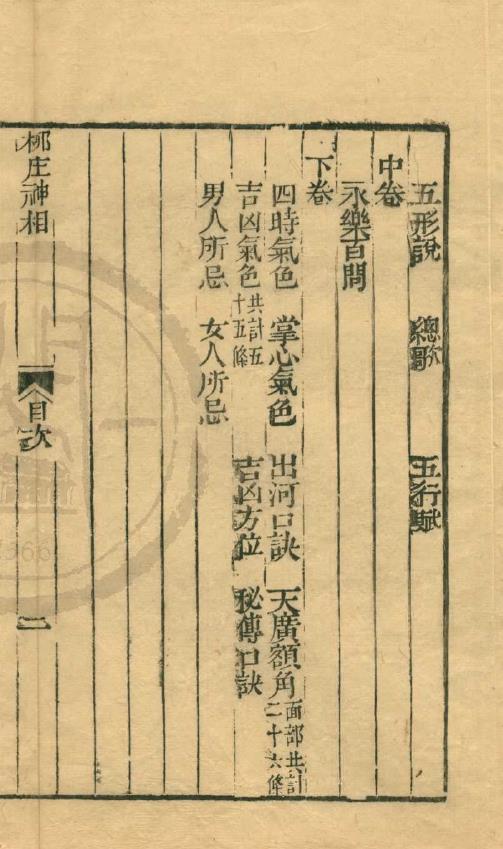 五形說 總歌 五行賦
中卷
永樂百問
下卷
四時氣色 掌心氣色 出河口訣 天廣額角 面部共計二十六條
吉凶氣色 共計五十五條 吉凶方位 秘傳口訣
男人所忌 女人所忌
柳庄神相 目次 二